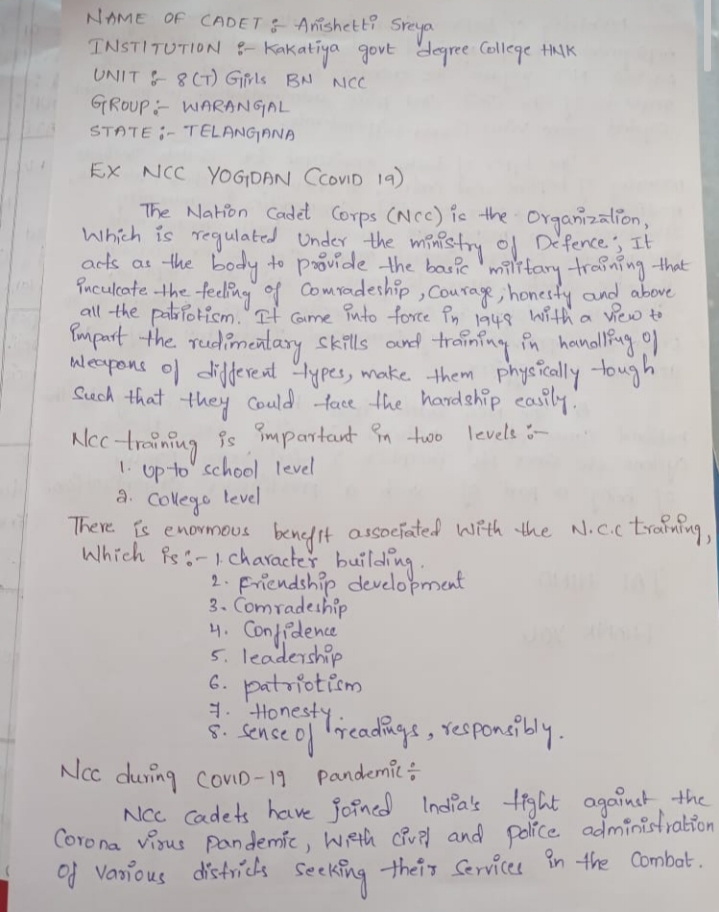 NAME OF CADET :- Anishetti Sreya
INSTITUTION :- Kakatiya govt degree College HNK
UNIT :- 8 (T) Girls BN NCC
GROUP :- WARANGAL
STATE :- TELANGANA
EX NCC YOGDAN (COVID 19)
The Nation Cadet Corps (NCC) is the Organization,
Which is regulated Under the ministry of Defence; It
acts as the body to provide the basic military training that
inculcate the feeling of Comradeship, Courage, honesty and above
all the patriotism. It Came into force in 1948 With a view to
impart the rudimentary skills and training in handling of
Weapons of different types, make them physically tough
Such that they Could face the hardship easily.
NCC training is important in two levels :-
1. up to school level
2. College level
There is enormous benefit associated With the N.C.C training,
Which is :- 1. character building.
2. Friendship development
3. Comradeship
4. Confidence
5. leadership
6. patriotism
7. Honesty.
8. sense of readings, responsibly.
NCC during COVID-19 pandemic :-
NCC Cadets have joined India's fight against the
Corona virus Pandemic, With civil and police administration
Of various districts seeking their services in the Combat.